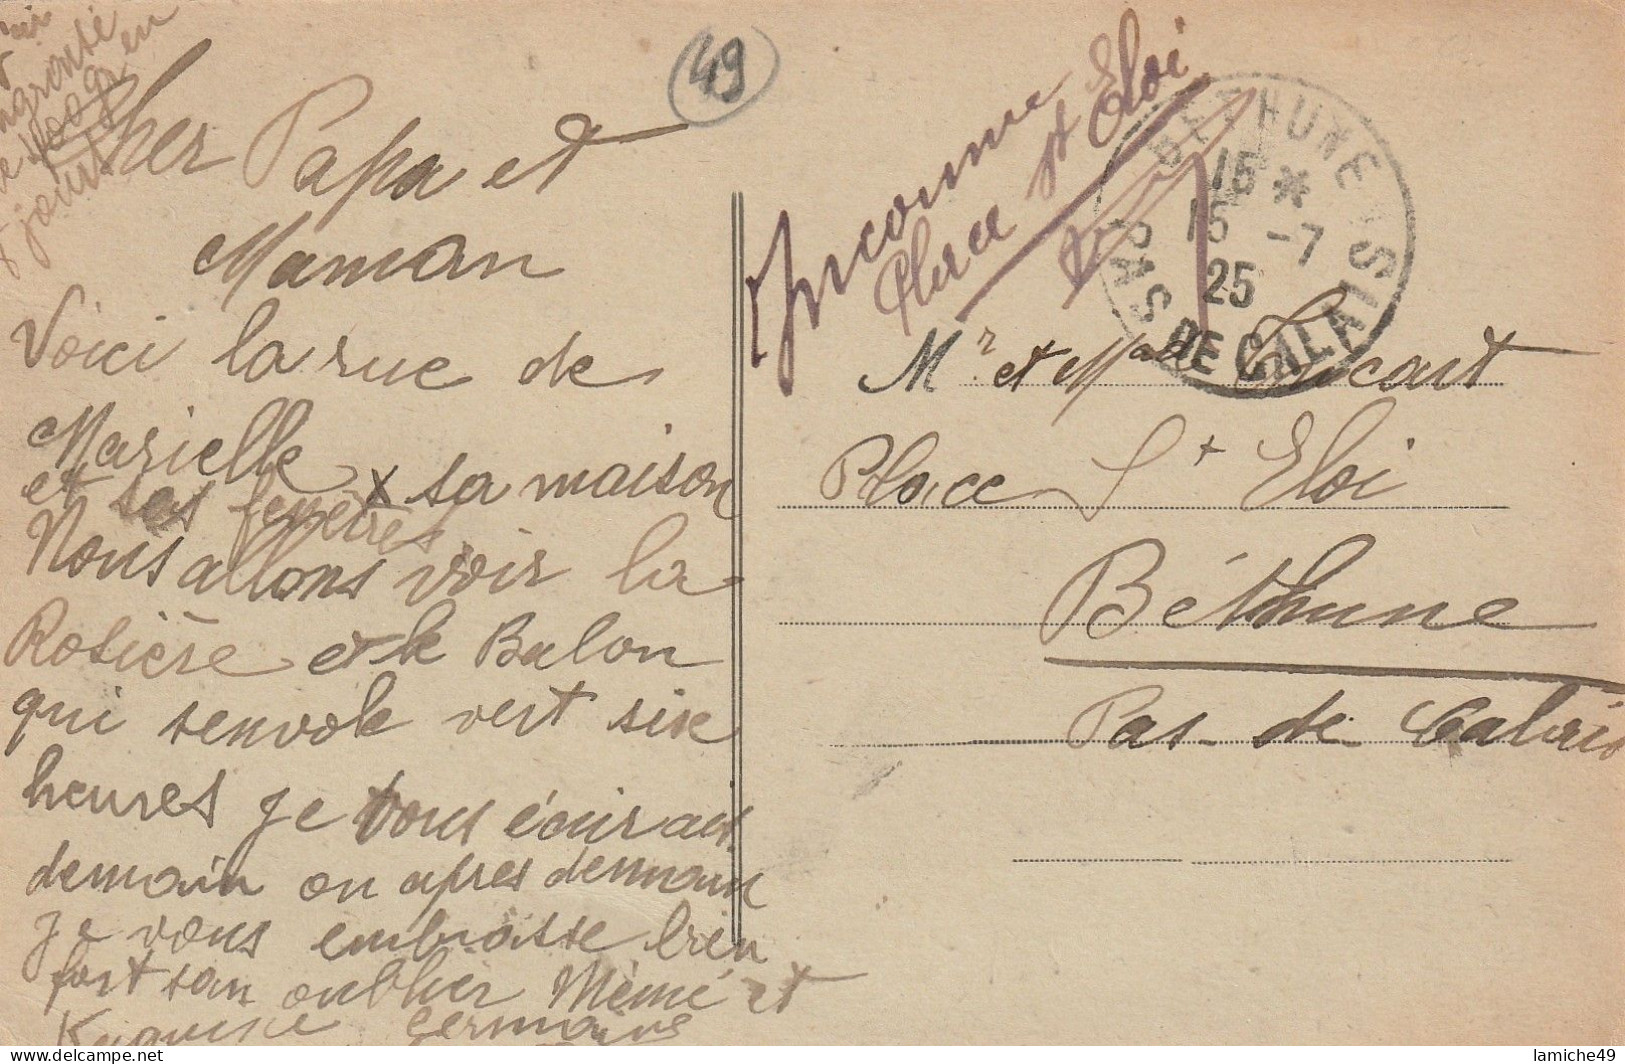 engraissé
en
jours
49
Cher Papa et
Maman
Voici la rue de
Marielle x sa maison
et ses fenetres
Nous allons voir la
Rosière et le Balon
qui senvole vert six
heures je vous écirais
demain ou apres demmain
je vous embrasse bien
fort san oublier Mémé et
germaine
Inconnue
Place St Eloi
BETHUNE
15 *
15 -7
25
PAS DE CALAIS
Mr et Mad
Place St Eloi
Béthune
Pas-de Calais
delcampe.net
lamiche49